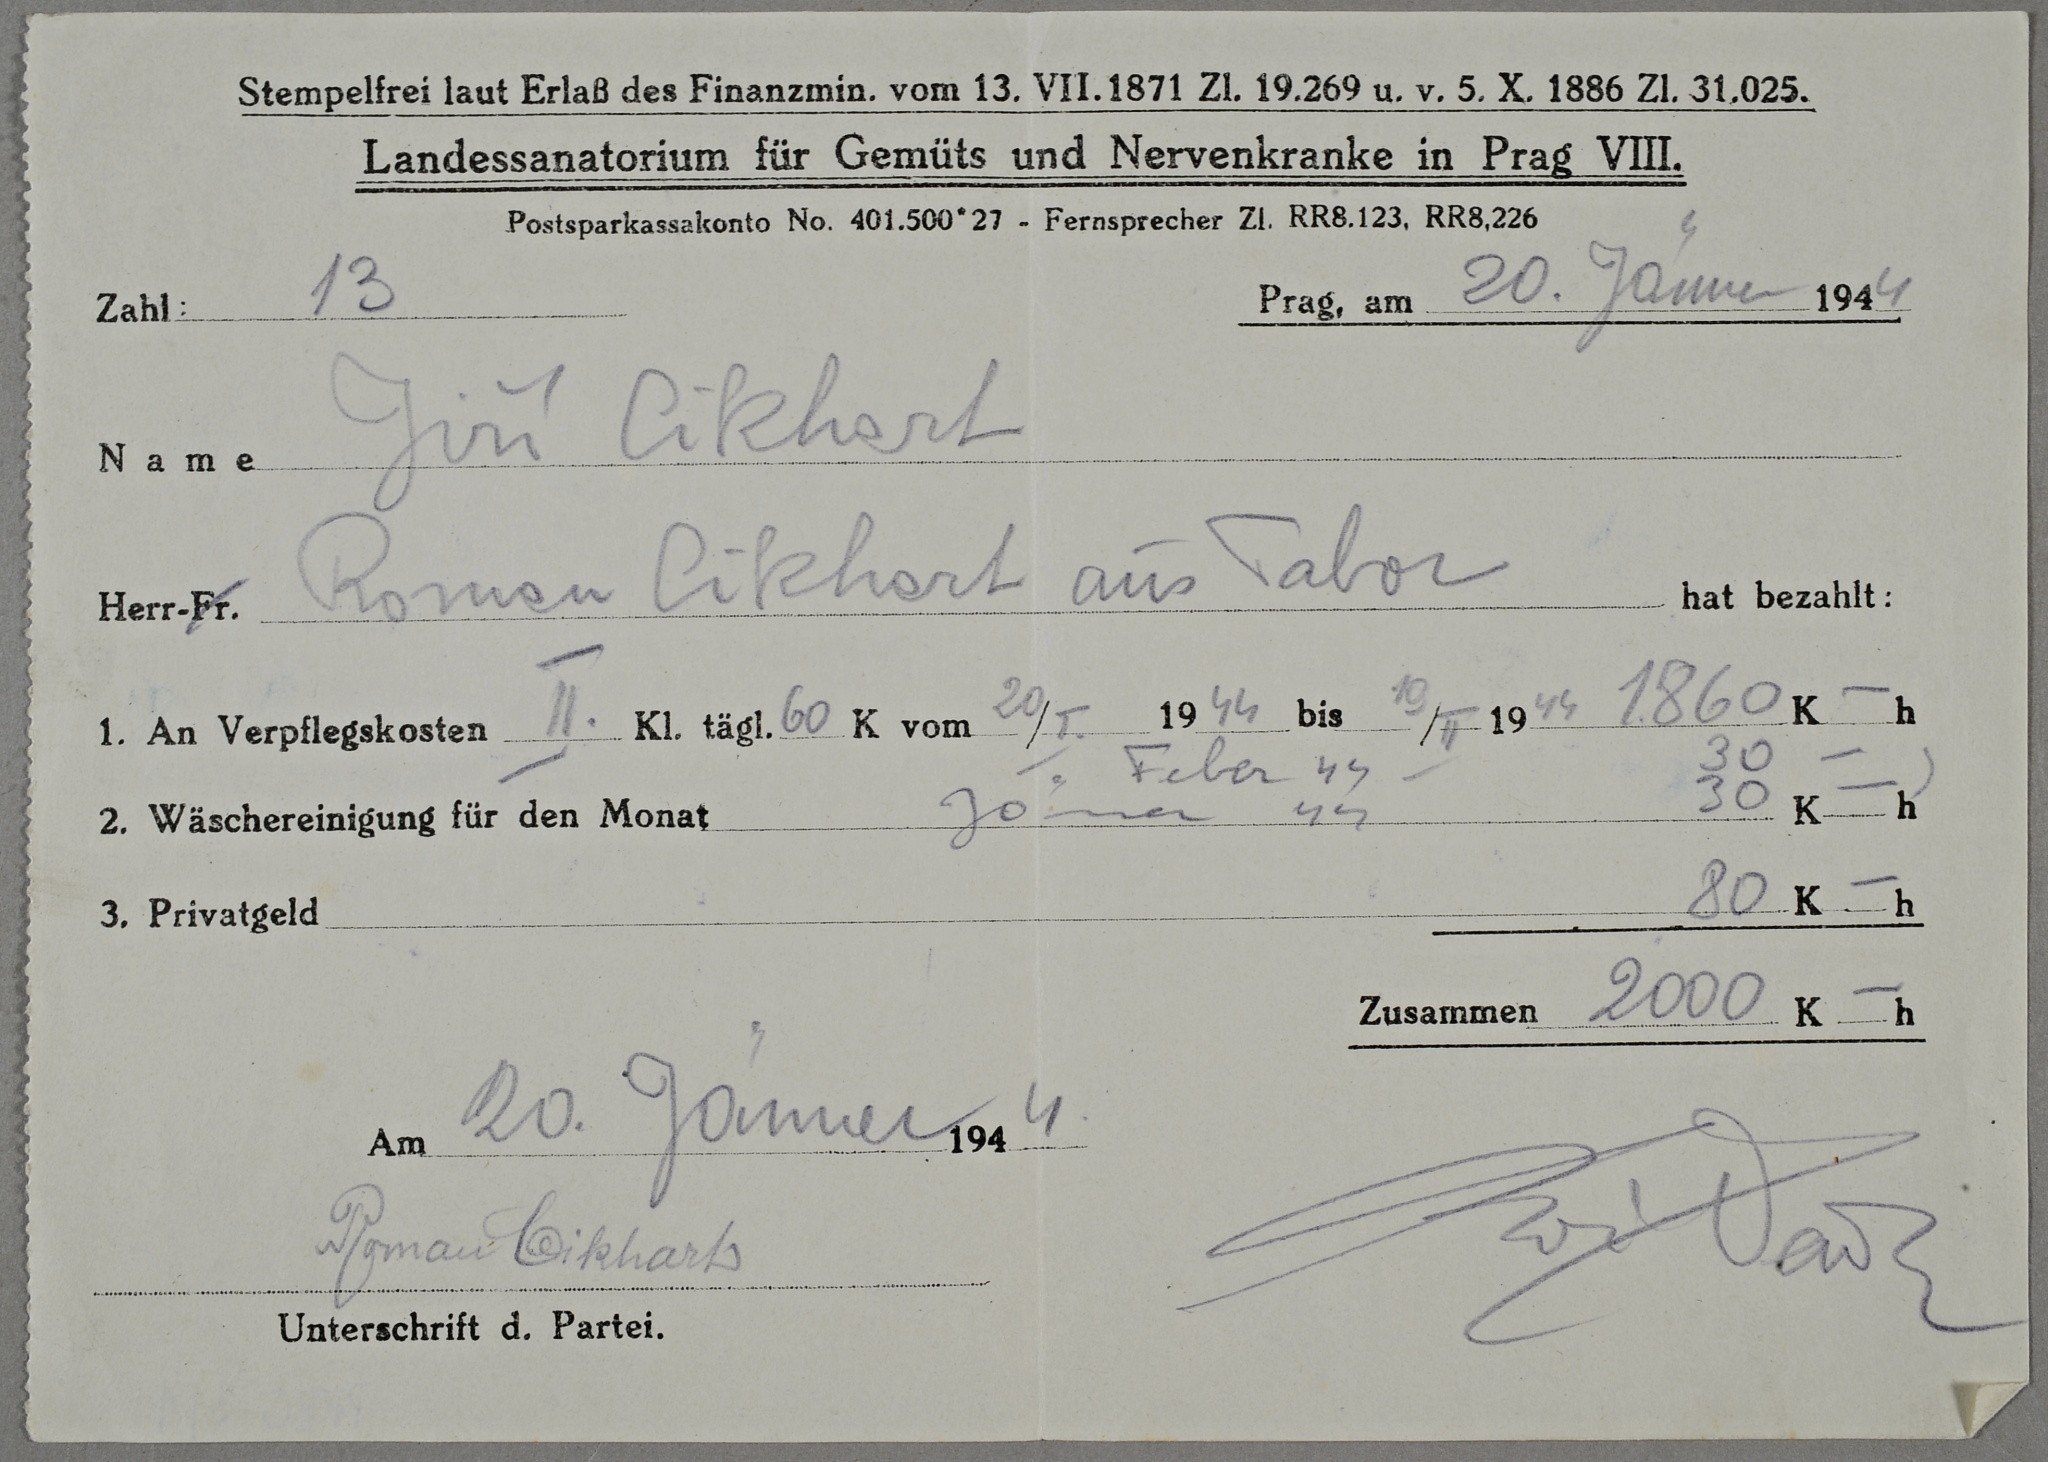 Stempelfrei laut Erlaß des Finanzmin. vom 13. VII. 1871 Zl. 19.269 u. v. 5. X. 1886 Zl. 31.025.
Landessanatorium für Gemüts und Nervenkranke in Prag VIII.
Postsparkassakonto No. 401.500*27 - Fernsprecher Zl. RR8.123, RR8,226
Zahl: 13 Prag, am 20. Jänner 1944
Name Jiří Cikhart
Herr-Fr. Roman Cikhart aus Tabor hat bezahlt:
1. An Verpflegskosten II. Kl. tägl. 60 K vom 20/I. 1944 bis 19/II 1944 1.860 K — h
Feber 44 — 30 —
2. Wäschereinigung für den Monat Jänner 44 30 K — h
3. Privatgeld 80 K — h
Zusammen 2000 K — h
Am 20. Jänner 1944.
Roman Cikhart
Unterschrift d. Partei.